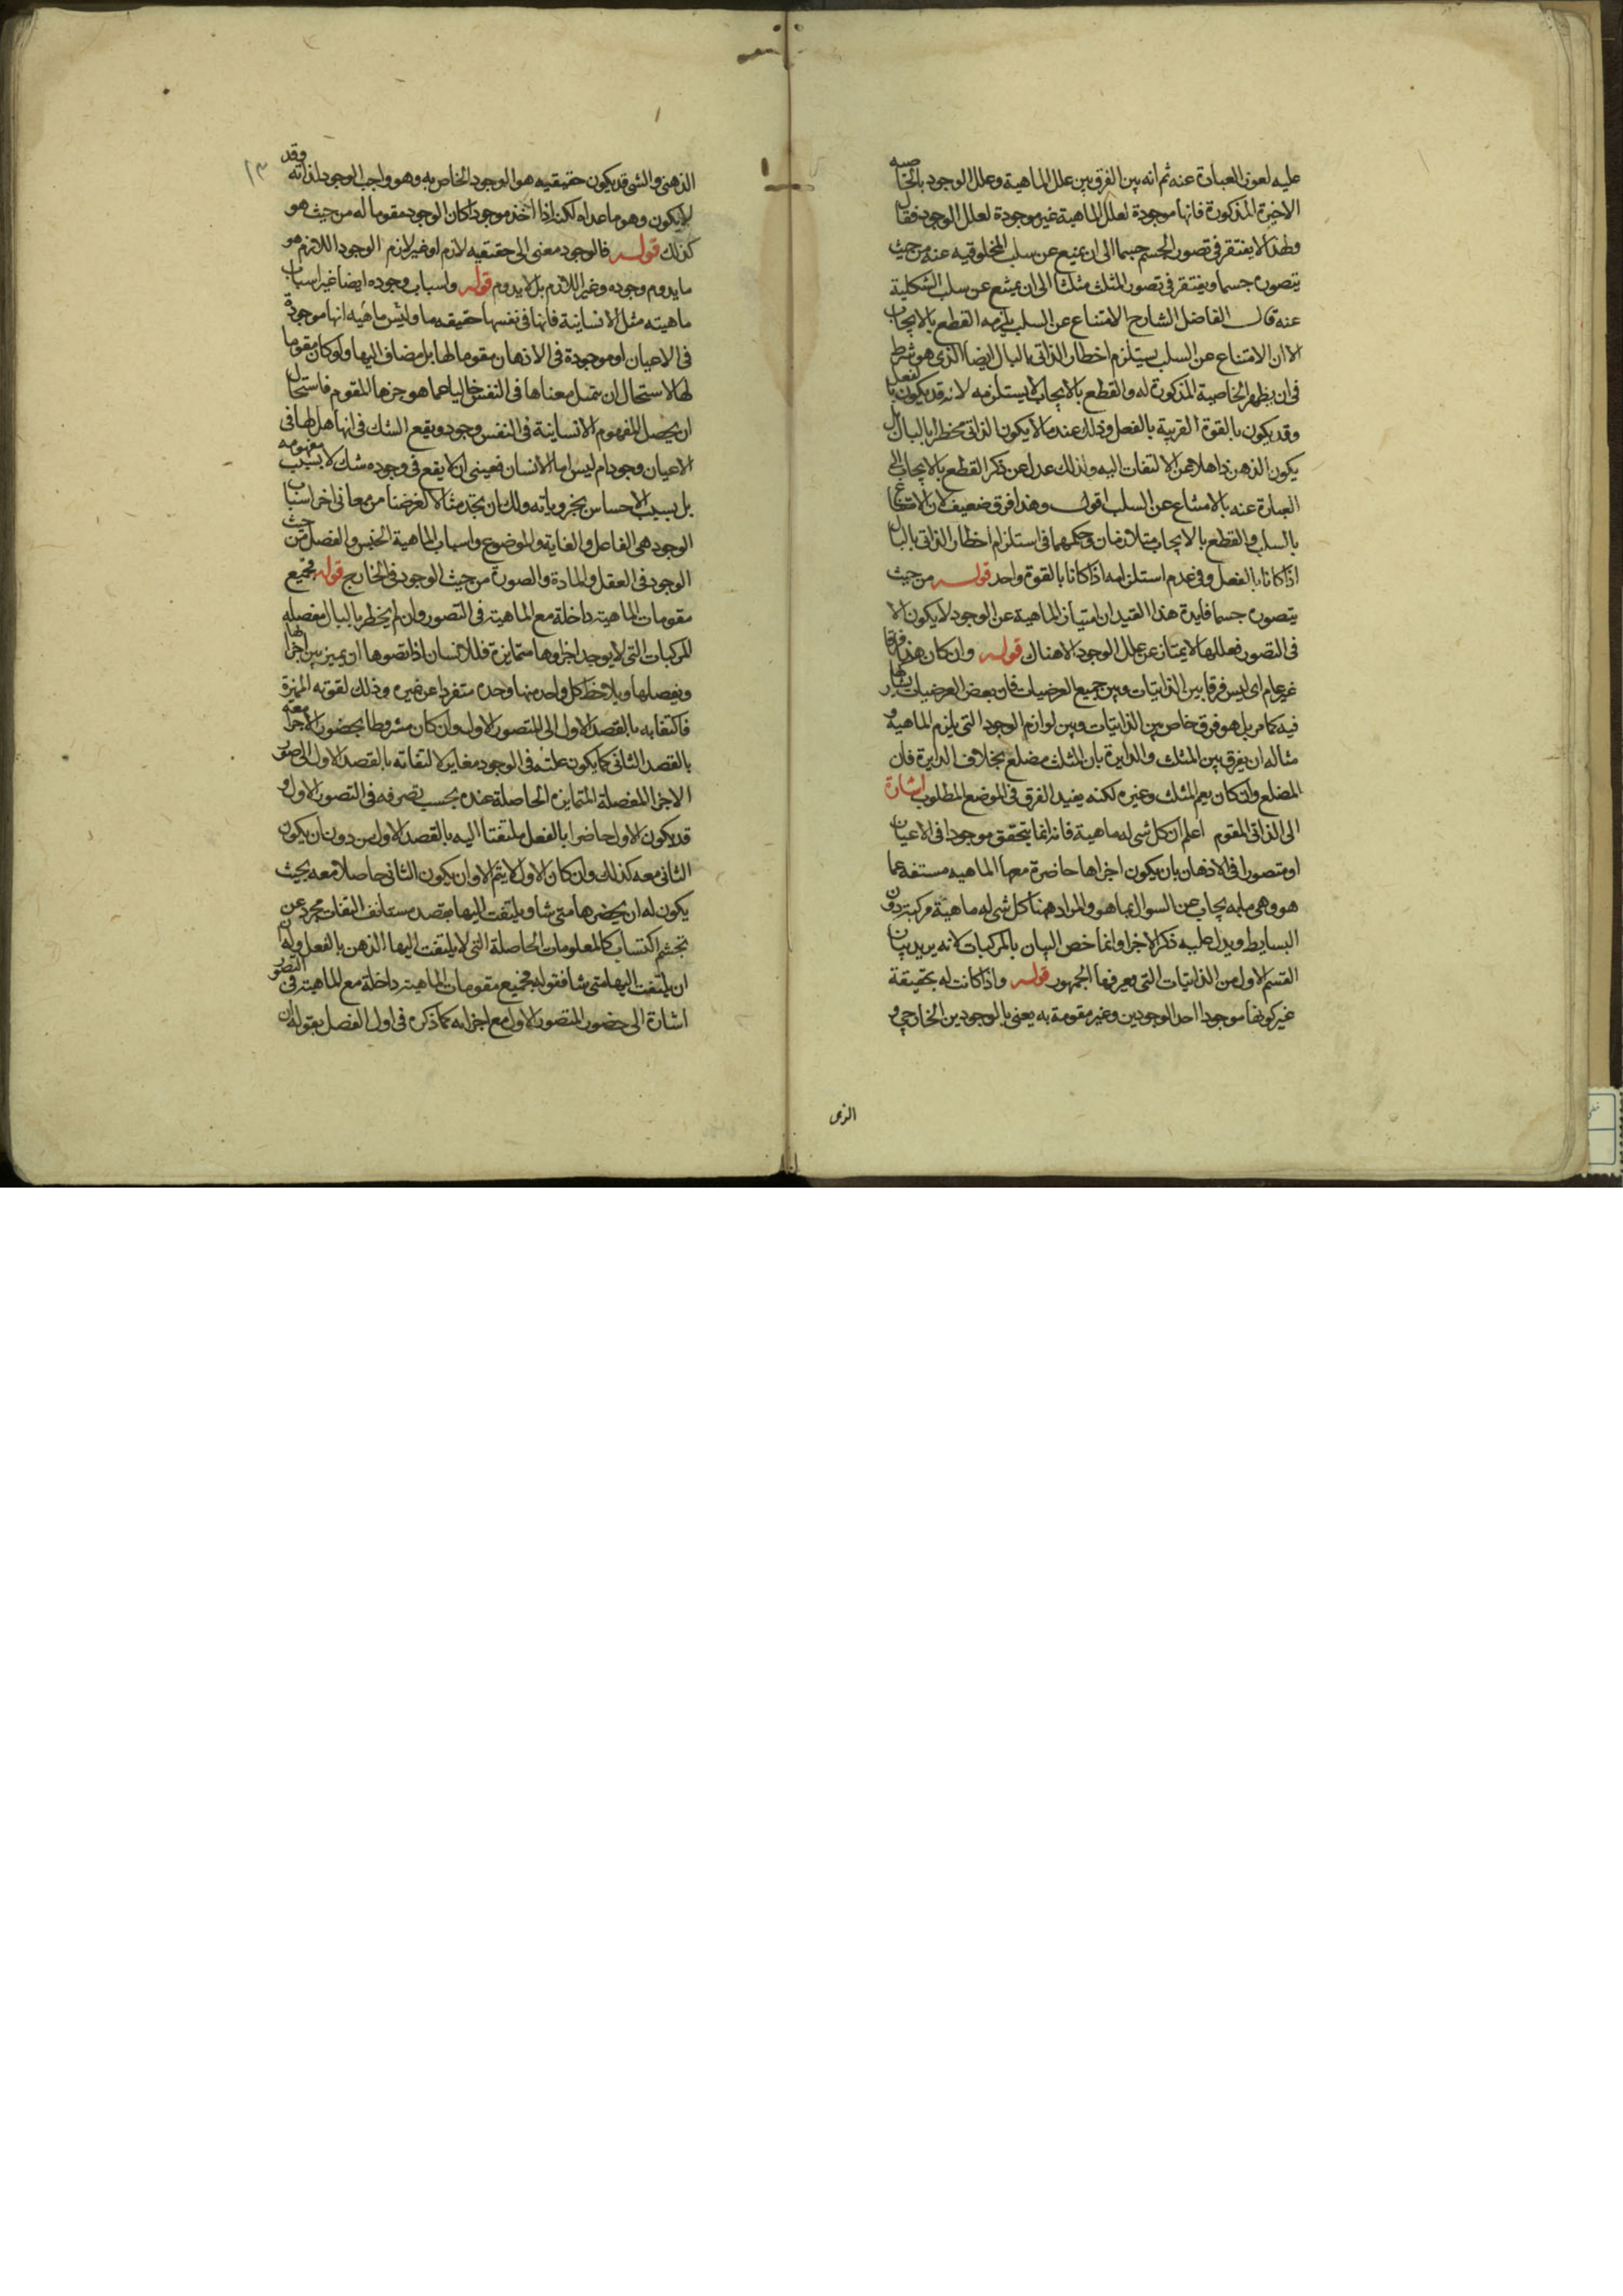 عليه لعوز العبارة عنه ثم انه بين الفرق بين علل الماهية وعلل الوجود بالخاصيه
الاخيرة المذكورة فانها موجودة لعلل الماهية غير موجودة لعلل الوجود فقال
ولهذا لا يفتقر في تصور الجسم جسما الى ان يمتنع عن سلب المخلوقيه عنه من حيث
يتصوره جسما ويفتقر في تصور المثلث مثلثا الى ان يمتنع عن سلب الشكلية
عنه قال الفاضل الشارح الامتناع عن السلب يلزمه القطع بالايجاب
الا ان الامتناع عن السلب يستلزم اخطار الذاتي بالبال ايضا الذي هو شرط
في ان يظهر الخاصية المذكورة له والقطع بالايجاب لا يستلزمه لانه قد يكون بالفعل
وقد يكون بالقوة القريبة بالفعل وذلك عندما لا يكون الذاتي مخطرا بالبال بل
يكون الذهن ذاهلا عن الالتفات اليه ولذلك عدل عن ذكر القطع بالايجاب الى
العبارة عنه بالامتناع عن السلب اقول وهذا فرق ضعيف لان الامتناع
بالسلب والقطع بالايجاب متلازمان وحكمهما في استلزام اخطار الذاتي بالبال
اذا كانا بالفعل وفي عدم استلزامه اذا كانا بالقوة واحد قوله من حيث
يتصوره جسما فايدة هذا القيد ان امتياز الماهية عن الوجود لا يكون الا
في التصور فعللها لا يمتاز عن علل الوجود الا هناك قوله وان كان هذا فرقا
غير عام اى ليس فرقا بين الذاتيات وبين جميع العرضيات فان بعض العرضيات يشارك
فيه كما مر بل هو فرق خاص بين الذاتيات وبين لوازم الوجود التي يلزم الماهية و
مثاله ان يفرق بين المثلث والدايرة بان المثلث مضلع بخلاف الدايرة فان
المضلع وان كان يعم المثلث وغيره لكنه يفيد الفرق في الموضع المطلوب اشارة
الى الذاتي المقوم اعلم ان كل شى له ماهية فانه انما يتحقق موجودا في الاعيان
او متصورا في الاذهان بان يكون اجزاها حاضرة معها الماهيه مستفه عما
هو وهي ما به يجاب عن السوال بما هو والمراد ههنا كل شى له ماهية مركبة دون
البسايط ويدل عليه ذكر الاجزا وانما خص البيان بالمركبات لانه يريد بيان
القسم الاول من الذاتيات التي يعرفها الجمهور قوله واذا كانت له حقيقة
غير كونها موجودا احد الوجودين وغير مقومة به يعنى بالوجودين الخارجي و
الذى
الذهنى والشى قد يكون حقيقيه هو الوجود الخاص به وهو واجب الوجود لذاته وقد
لا يكون وهو ما عداه لكنه اذا اخذ موجودا كان الوجود مقوما له من حيث هو
كذلك قوله فالوجود معنى الى حقيقيه لازم او غير لازم الوجود اللازم هو
ما يدوم وجوده وغير اللازم بل لا يدوم قوله واسباب وجوده ايضا غير اسباب
ماهيته مثل الانسانية فانها في نفسها حقيقه ما وليس ماهيه انها موجودة
في الاعيان او موجودة في الاذهان مقوما لها بل مضاف اليها ولو كان مقوما
لها لاستحال ان يتمثل معناها في النفس خاليا عما هو جزها المقوم فاستحال
ان يحصل المفهوم الانسانية في النفس وجود ويقع الشك في انها هل لها في
الاعيان وجود ام ليس اما الانسان فعسى ان لا يقع في وجوده شك لا بسبب مفهومه
بل بسبب الاحساس بجزوياته ولك ان تجد مثالا لغرضنا من معاني اخر اسباب
الوجود هى الفاعل والغاية والموضوع واسباب الماهية الجنس والفصل من حيث
الوجود في العقل والمادة والصورة من حيث الوجود في الخارج قوله فجميع
مقومات الماهية داخلة مع الماهية في التصور وان لم يخطر بالبال مفصله
المركبات التي لا يوجد اجزاوها متمايزة فللانسان اذا تصوها ان يميز بين اجزائها
ويفصلها ويلاحظ كل واحد منها وحده متفردا عن غيره وذلك لقوته المميزة
فاكتفا به بالقصد الاول الى المتصور الاول وان كان مشروطا بحضور الاجزا معه
بالقصد الثاني كما يكون عليه في الوجود مغاير لالتفاته بالقصد الاول الى صور
الاجزا المفصلة المتمايزه الحاصلة عنده بحسب تصرفه في التصور الاول و
قد يكون الاول حاضرا بالفعل ملتفتا اليه بالقصد الاول من دون ان يكون
الثاني معه كذلك وان كان الاول لا يتم الا وان يكون الثاني حاصلا معه بحيث
يكون له ان يحضرها متى شا ويلتفت اليها بقصد مستانف التفات مجرد عن
تجشم اكتساب كالمعلومات الحاصلة التي لا يلتفت اليها الذهن بالفعل وله
ان يلتفت اليها متى شا فقوله فجميع مقومات الماهية داخلة مع الماهية في التصور
اشارة الى حضور المتصور الاول مع اجزايه كما ذكره في اول الفصل بقوله ان